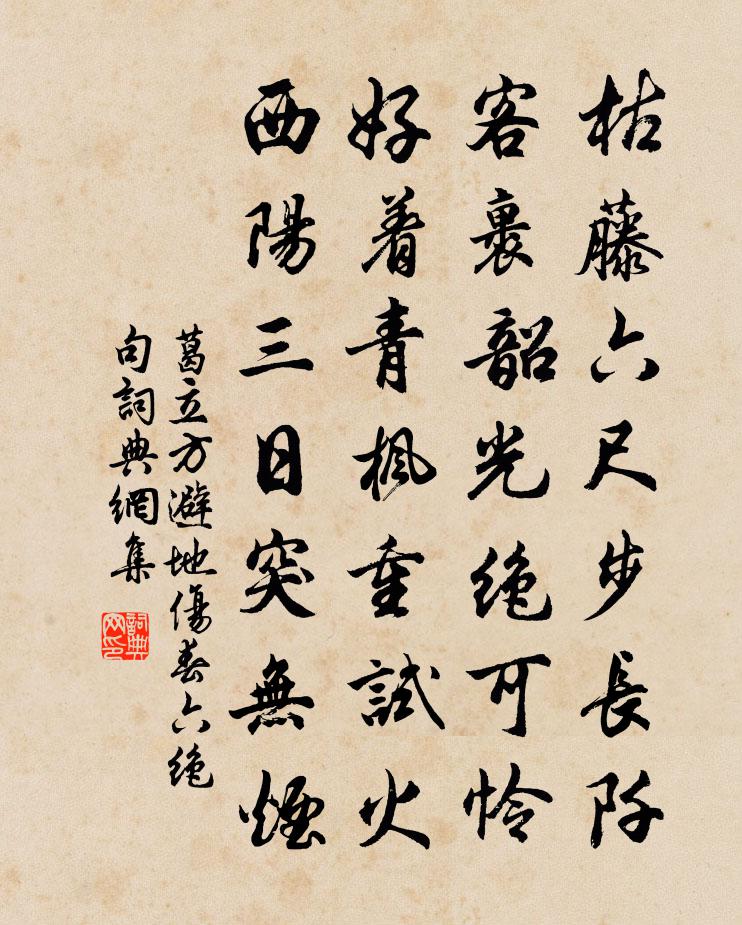 枯藤六尺步長阡
客裏韶光絶可怜
好着青楓重試火
西陽三日突無煙
葛立方避地傷春六絶
句詞典網集
詞典
网印